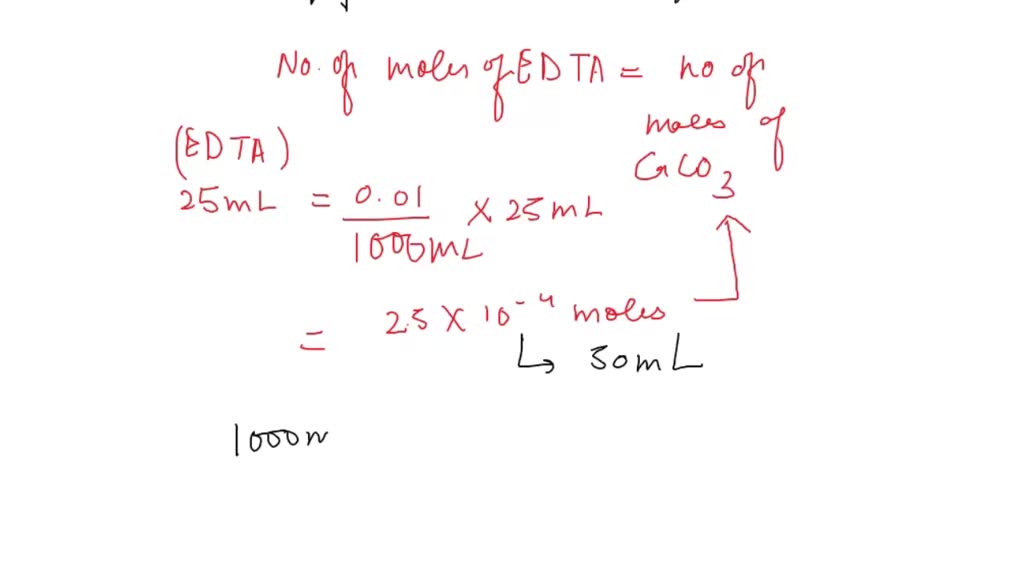 No. of moles of EDTA = no of
moles of
CaCO3
(EDTA)
25mL = 0.01 / 1000mL × 25mL
= 2.5 × 10⁻⁴ moles
↳ 50mL
1000m